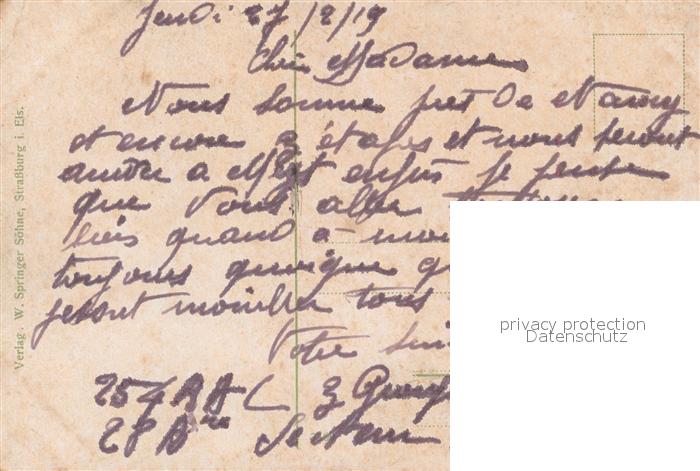 Jeudi 27/2/19
Chère Madame
Nous somme pret de Nancy
et encore 3 étapes et nous seront
arrivée a Metz enfin je pense
que Vous allez
bien quand à moi
toujours quoique
seront mouiller tous
Votre
254 RAC 3 Group
28 Bie Secteur
Verlag . W. Springer Söhne, Straßburg i. Els.
privacy protection
Datenschutz